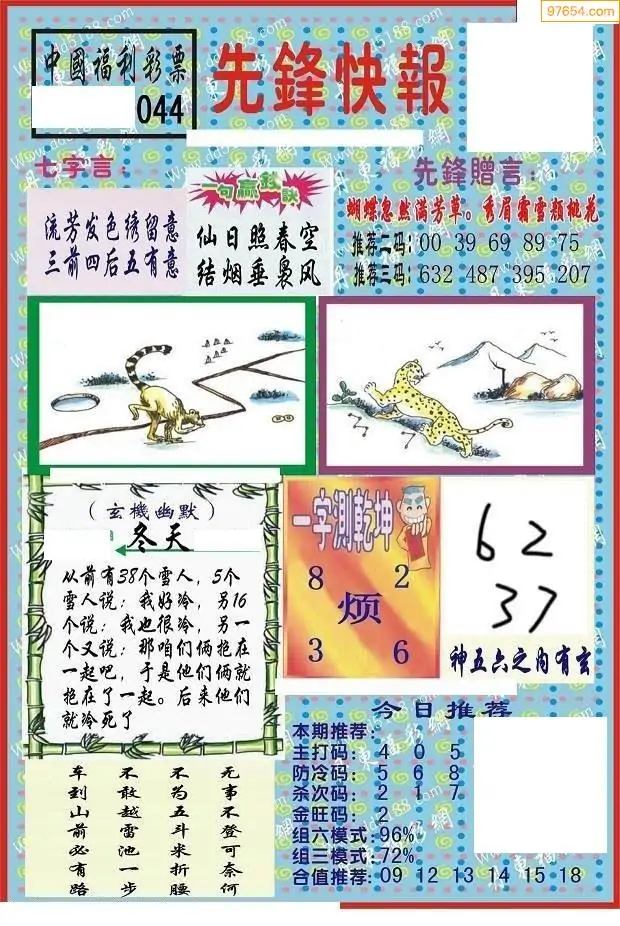 97654.com
中國福利彩票
044
先鋒快報
七字言:
流芳发色绣留意
三前四后五有意
一句赢钱訣
仙日照春空
结烟垂袅风
先鋒贈言:
蝴蝶忽然满芳草。秀眉霜雪颜桃花
推荐二码: 00 39 69 89 75
推荐三码: 632 487 395 207
(玄機幽默)
冬天
从前有38个雪人，5个
雪人说：我好冷，另16
个说：我也很冷，另一
个又说：那咱们俩抱在
一起吧，于是他们俩就
抱在了一起。后来他们
就冷死了
一字测乾坤
8 2
烦
3 6
62
37
神五六之内有玄
车到山前必有路
不敢越雷池一步
不为五斗米折腰
无事不登可奈何
今日推荐
本期推荐:
主打码: 4 0 5
防冷码: 5 6 8
杀次码: 2 1 7
金旺码: 2
组六模式: 96%
组三模式: 72%
合值推荐: 09 12 13 14 15 18